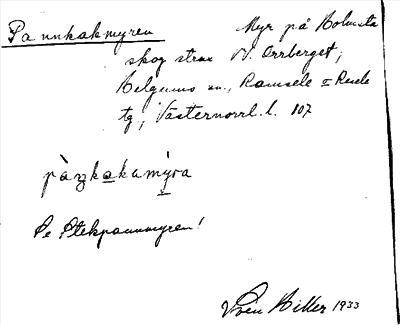 Pannkakmyren
Myr på Holmsta
skog strax V. Orrberget,
Helgums sn., Ramsele o Resele
tg, Västernorrl. l. 107
pànkakamýra
Se Stekpannmyren!
Sven Hiller 1933